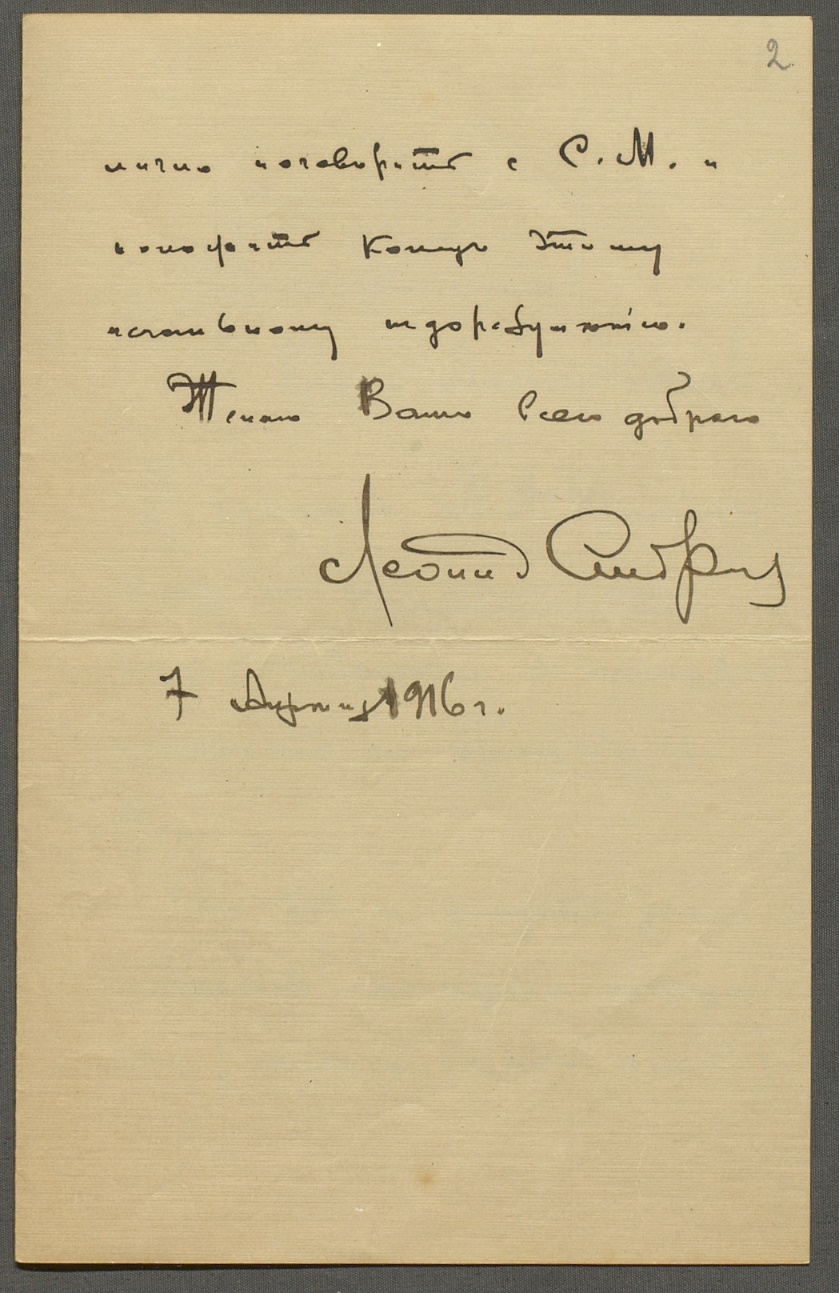 2
лично поговорить с С. М. и
положить конецъ этому
печальному недоразумѣнію.
Желаю Вамъ всего добраго
Леонид Андреев
7 Апрѣля 1916 г.